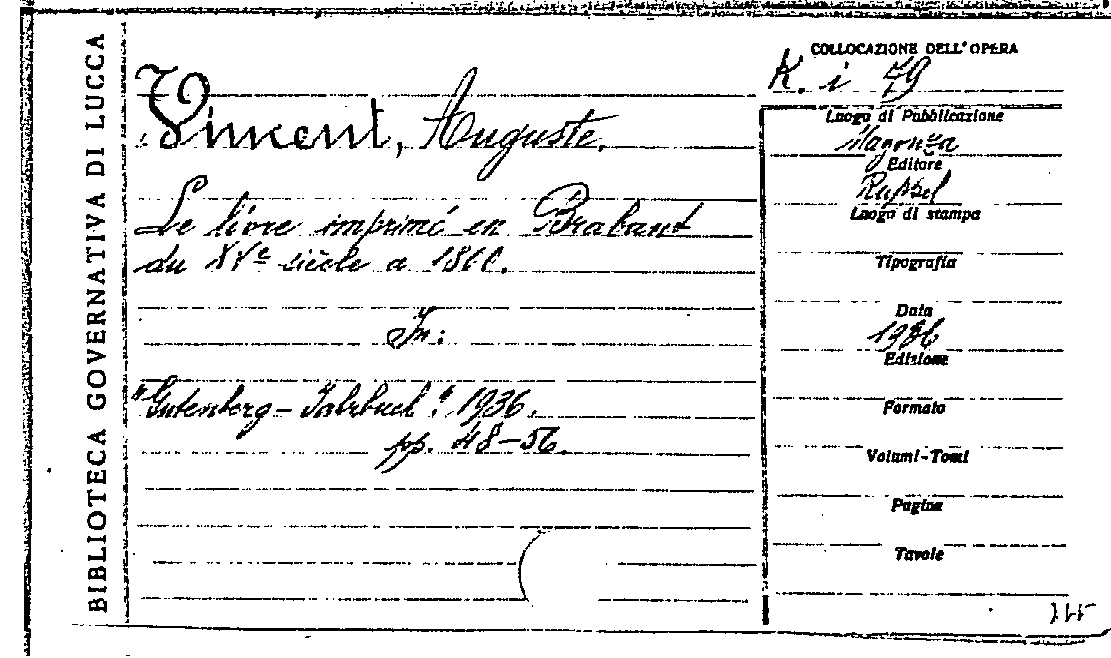 BIBLIOTECA GOVERNATIVA DI LUCCA
Vincent, Auguste.
Le livre imprimé en Brabant
du XVe siècle a 1800.
In:
"Gutenberg-Jahrbuch" 1936.
pp. 48-56.
COLLOCAZIONE DELL'OPERA
K. i 79
Luogo di Pubblicazione
Magonza
Editore
Ruppel
Luogo di stampa
Tipografia
Data
1936
Edizione
Formato
Volumi-Tomi
Pagine
Tavole